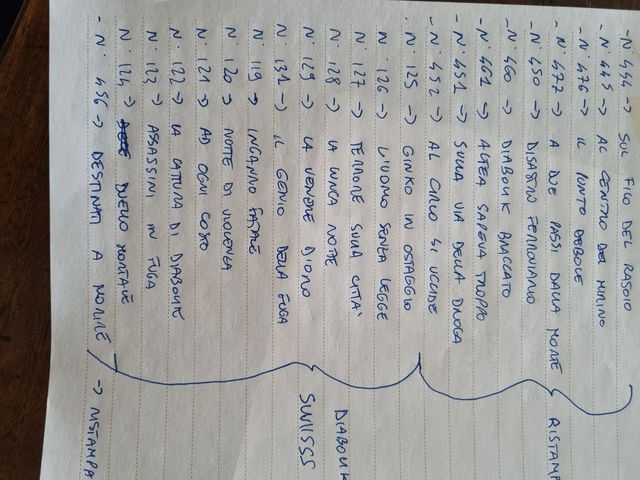 - N. 444 -> SUL FILO DEL RASOIO
- N. 445 -> AL CENTRO DEL MIRINO
- N. 476 -> IL PONTE DEBOLE
- N. 477 -> A DUE PASSI DALLA MORTE
- N. 450 -> DISASTRO FERROVIARIO
- N. 460 -> DIABOLIK BRACCATO
- N. 461 -> ALTEA SAPEVA TROPPO
- N. 451 -> SULLA VIA DELLA DROGA
- N. 452 -> AL CIRCO SI UCCIDE
RISTAMPA
- N. 125 -> GINKO IN OSTAGGIO
N. 126 -> L'UOMO SENZA LEGGE
N. 127 -> TERRORE SULLA CITTA'
N. 128 -> LA LUNGA NOTTE
N. 129 -> LA VENERE D'ORO
N. 131 -> IL GENIO DELLA FUGA
N. 119 -> INGANNO FATALE
N. 120 -> NOTTE DI VIOLENZA
N. 121 -> AD OGNI COSTO
N. 122 -> LA CATTURA DI DIABOLIK
N. 123 -> ASSASSINI IN FUGA
N. 124 -> DUELLO MORTALE
DIABOLIK
SWIISSS
- N. 456 -> DESTINATI A MORIRE -> RISTAMPA